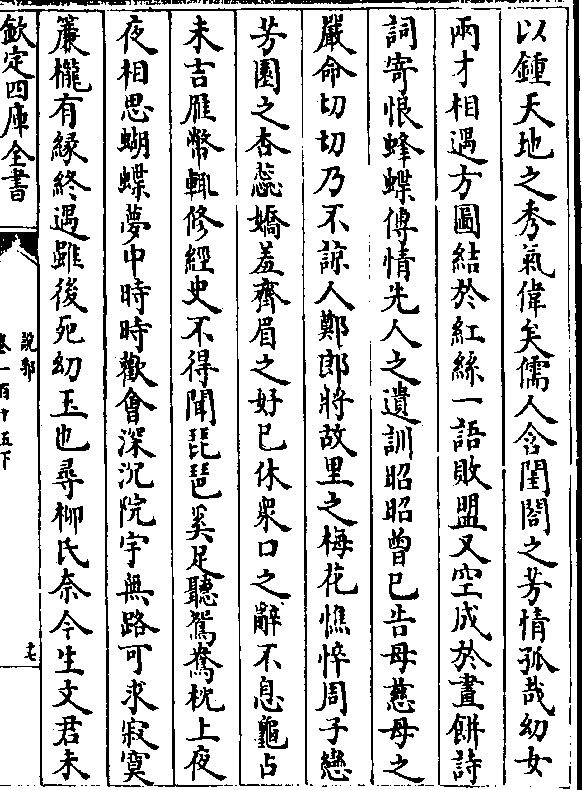 以鍾天地之秀氣偉矣儒人含閨閤之芳情孤哉幼女
兩才相遇方圖結於紅絲一語敗盟又空成於畫餅詩
詞寄恨蜂蝶傳情先人之遺訓昭昭曾已告母慈母之
嚴命切切乃不諒人鄭郎將故里之梅花憔悴周子戀
芳園之杏蕊嬌羞齊眉之好已休衆口之辭不息龜占
未吉雁幣輒修經史不得聞琵琶奚足聽鴛鴦枕上夜
夜相思蝴蝶夢中時時歡會深沉院宇無路可求寂寞
簾櫳有緣終遇雖後死幼玉也尋柳氏奈今生文君未
欽定四庫全書
說郛
卷一百十五下
十七